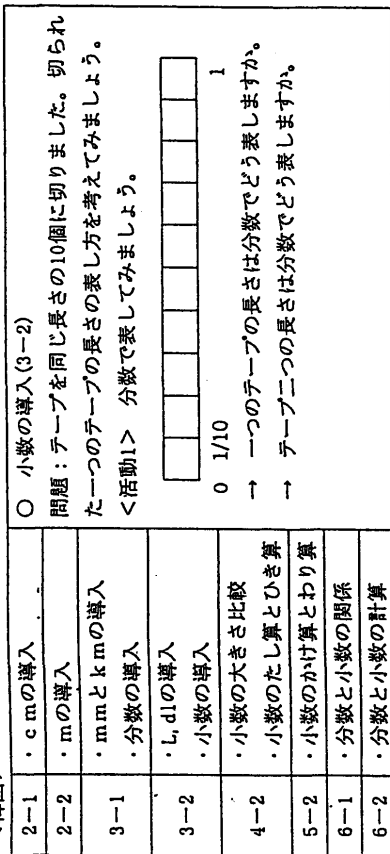 2-1 ・cmの導入
2-2 ・mの導入
3-1 ・mmとkmの導入
・分数の導入
3-2 ・L,dlの導入
・小数の導入
4-2 ・小数の大きさ比較
・小数のたし算とひき算
5-2 ・小数のかけ算とわり算
6-1 ・分数と小数の関係
6-2 ・分数と小数の計算
○ 小数の導入(3-2)
問題：テープを同じ長さの10個に切りました。切られ
た一つのテープの長さの表し方を考えてみましょう。
<活動1> 分数で表してみましょう。
0 1/10 1
→ 一つのテープの長さは分数でどう表しますか。
→ テープ二つの長さは分数でどう表しますか。